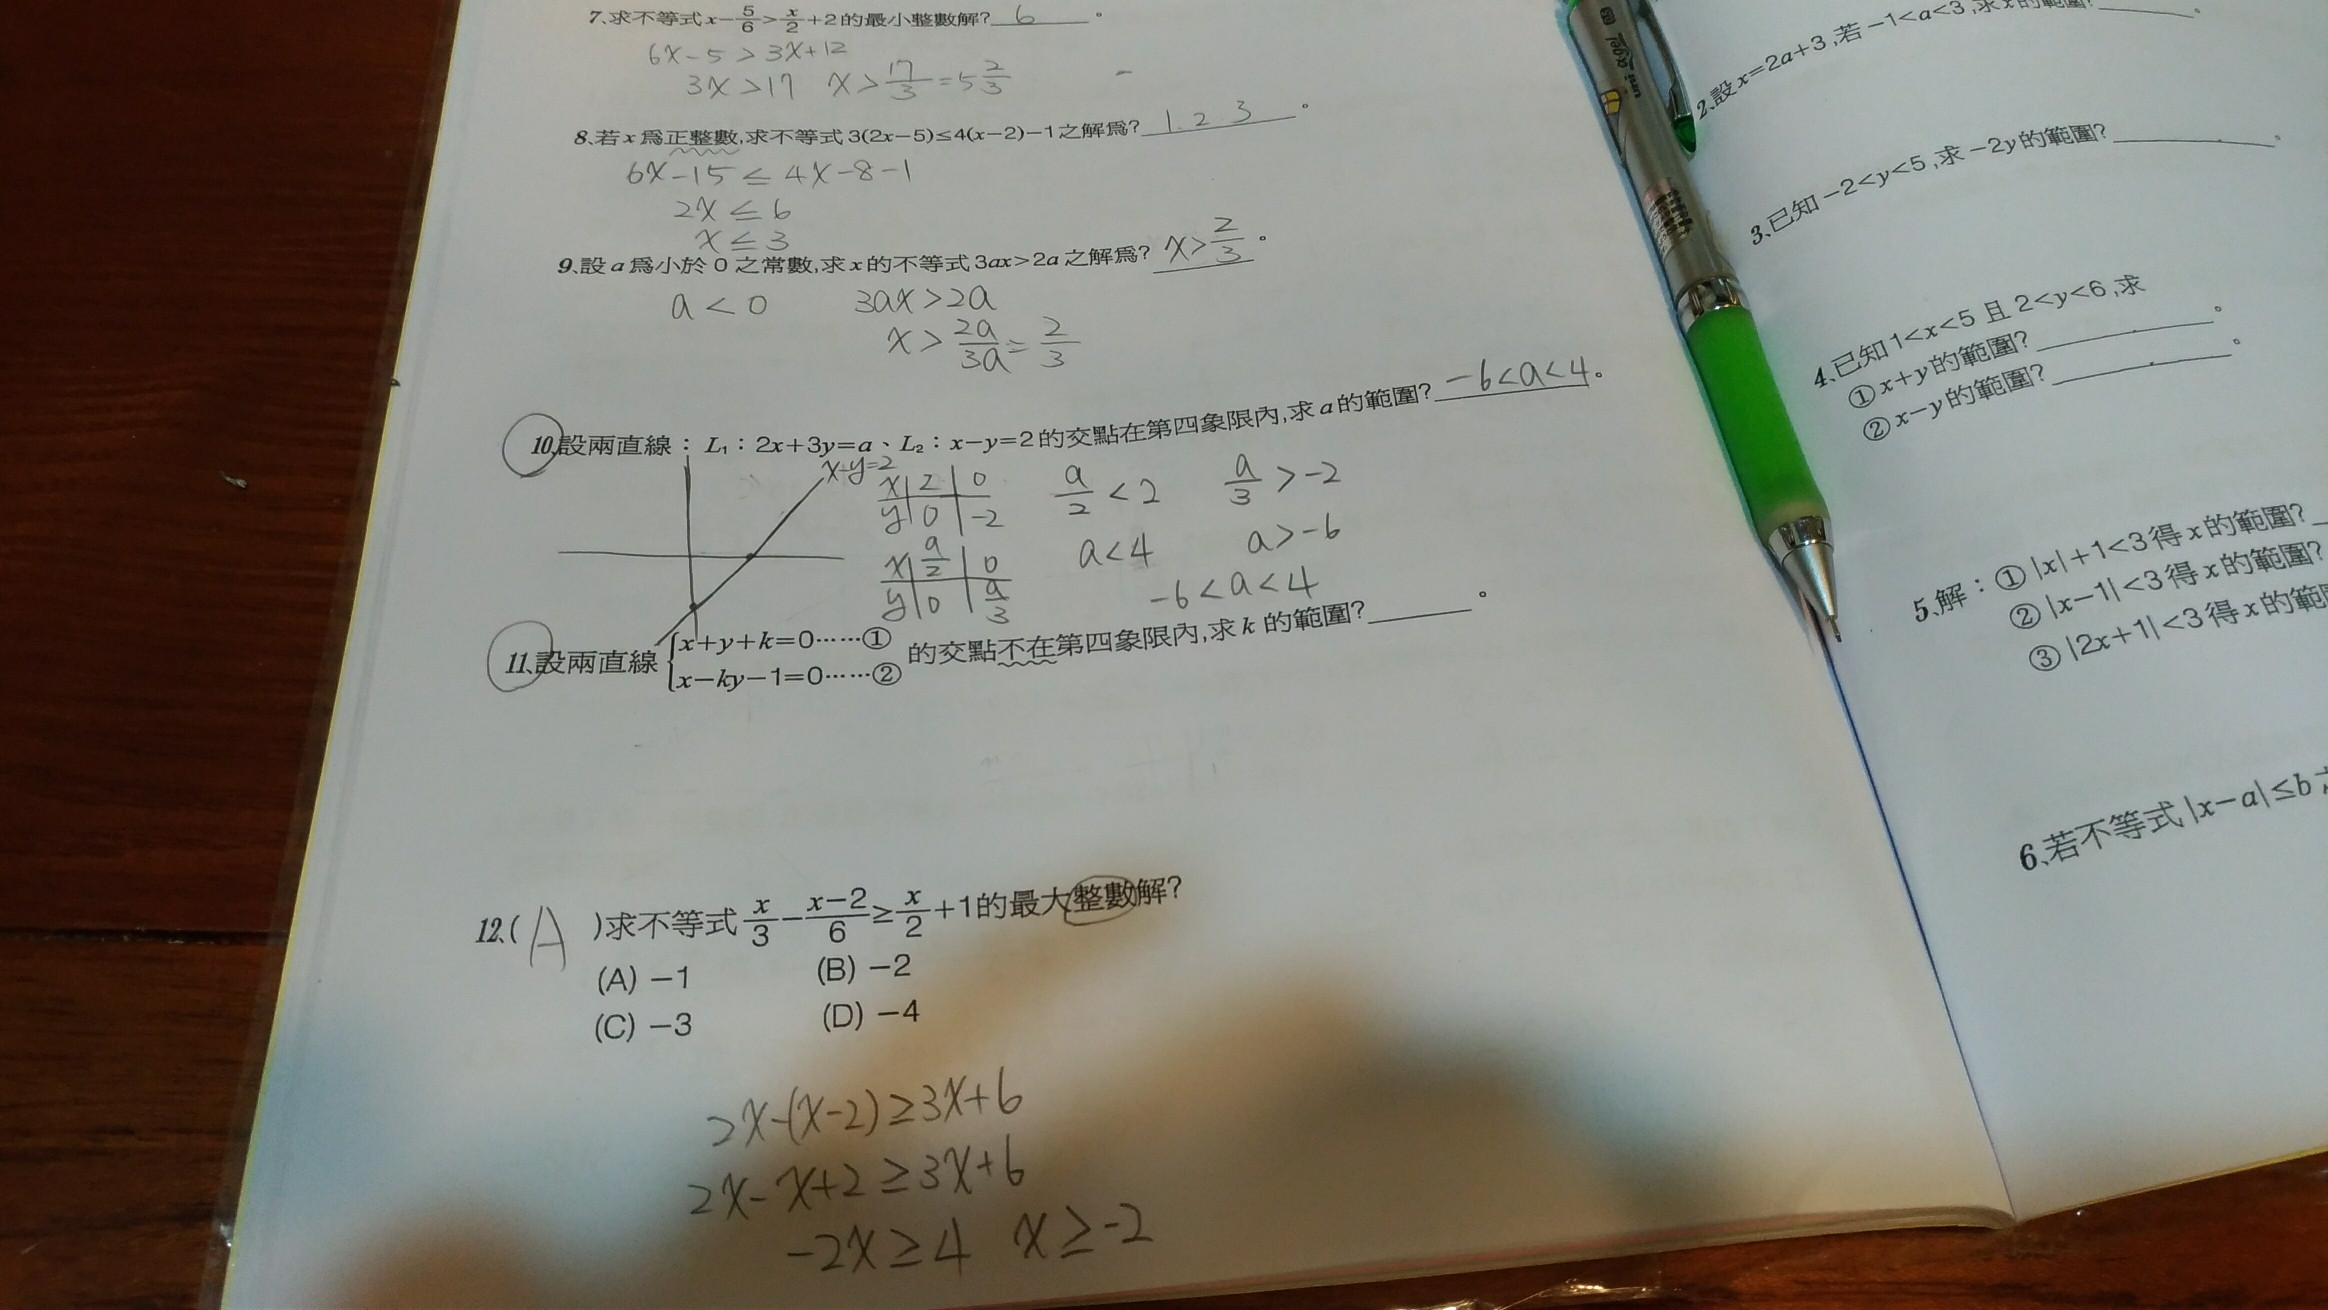 7、求不等式x−5/6>x/2+2的最小整數解?6。
6x-5>3x+12
3x>17 x>17/3=5 2/3
8、若x為正整數,求不等式3(2x−5)≤4(x−2)−1之解為?1.2 3。
6x-15≤4x-8-1
2x≤6
x≤3
9、設a為小於0之常數,求x的不等式3ax>2a之解為?x>2/3。
a<0 3ax>2a
x>2a/3a=2/3
10、設兩直線：L₁：2x+3y=a、L₂：x−y=2的交點在第四象限內,求a的範圍?-6<a<4。
x-y=2
x 2 0
y 0 -2
x a/2 0
y 0 a/3
a/2<2 a/3>-2
a<4 a>-6
-6<a<4
11、設兩直線{x+y+k=0……①
x−ky−1=0……②
的交點不在第四象限內,求k的範圍?。
12、(A)求不等式x/3−(x−2)/6≥x/2+1的最大整數解?
(A) −1 (B) −2
(C) −3 (D) −4
2x-(x-2)≥3x+6
2x-x+2≥3x+6
-2x≥4 x≥-2
2、設x=2a+3,若−1<a<3,求x的範圍?。
3、已知−2<y<5,求−2y的範圍?。
4、已知1<x<5且2<y<6,求
①x+y的範圍?。
②x−y的範圍?。
5、解：①|x|+1<3得x的範圍?
②|x−1|<3得x的範圍?
③|2x+1|<3得x的範
6、若不等式|x−a|≤b
uni